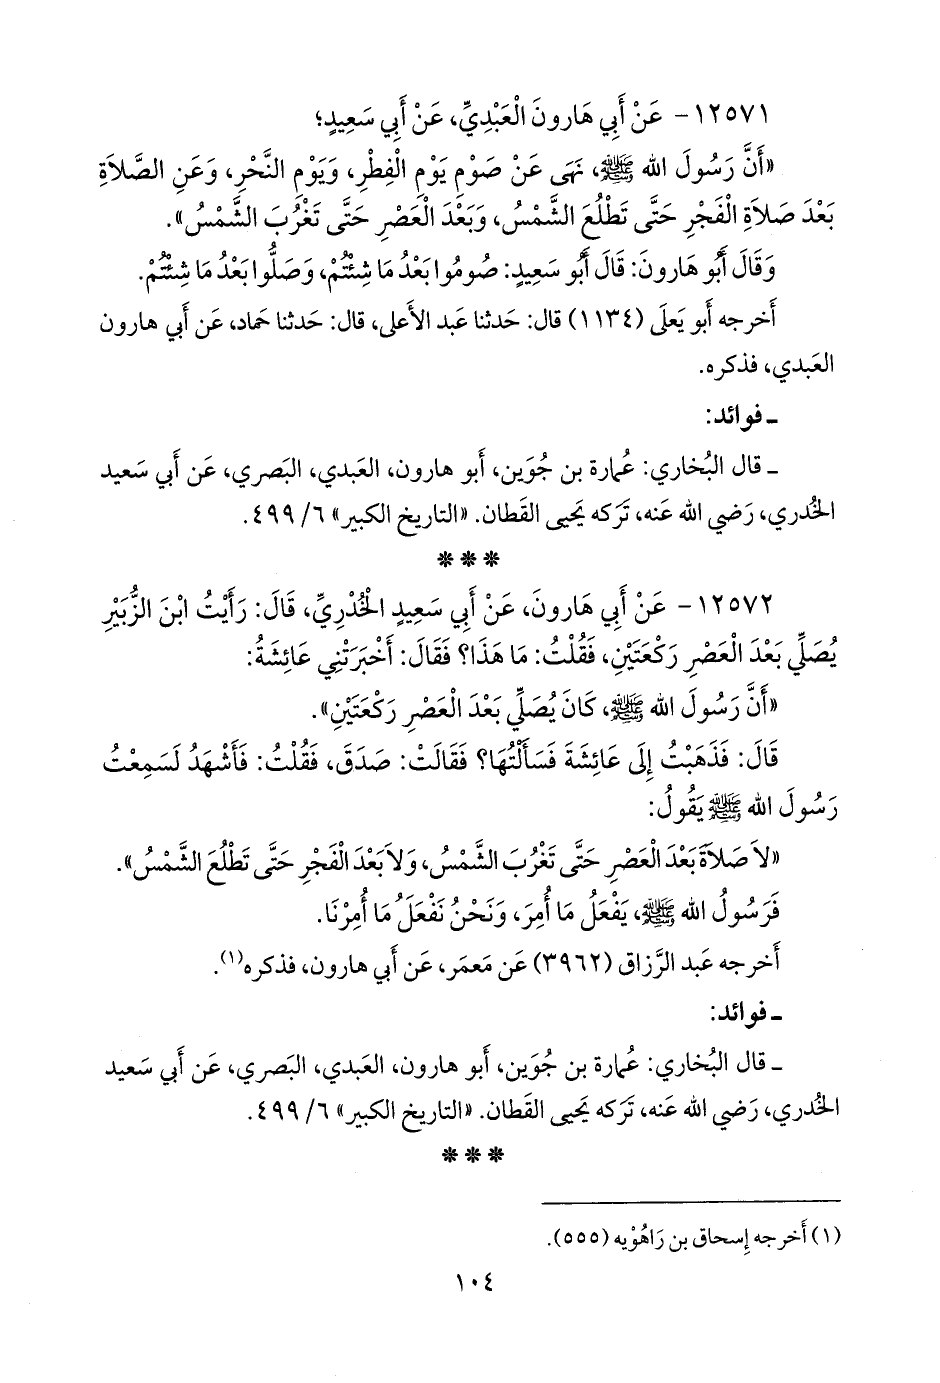 ١٢٥٧١- عَنْ أَبِي هَارونَ الْعَبْدِيِّ، عَنْ أَبِي سَعِيدٍ؛
«أَنَّ رَسُولَ الله ﷺ، نَهَى عَنْ صَوْمِ يَوْمِ الْفِطْرِ، وَيَوْمِ النَّحْرِ، وَعَنِ الصَّلاَةِ
بَعْدَ صَلاَةِ الْفَجْرِ حَتَّى تَطْلُعَ الشَّمْسُ، وَبَعْدَ الْعَصْرِ حَتَّى تَغْرُبَ الشَّمْسُ».
وَقَالَ أَبُو هَارونَ: قَالَ أَبُو سَعِيدٍ: صُومُوا بَعْدُ مَا شِئْتُمْ، وَصَلُّوا بَعْدُ مَا شِئْتُمْ.
أَخرجه أَبو يَعلَى (١١٣٤) قال: حَدثنا عَبد الأَعلى، قال: حَدثنا حَماد، عَن أَبي هارون
العَبدي، فذكره.
ـ فوائد:
ـ قال البُخاري: عُمارة بن جُوَين، أَبو هارون، العَبدي، البَصري، عَن أَبي سَعيد
الخُدري، رَضي الله عَنه، تَركه يَحيى القَطان. «التاريخ الكبير» ٦/ ٤٩٩.
***
١٢٥٧٢- عَنْ أَبِي هَارونَ، عَنْ أَبِي سَعِيدٍ الْخُدْرِيِّ، قَالَ: رَأَيْتُ ابْنَ الزُّبَيْرِ
يُصَلِّي بَعْدَ الْعَصْرِ رَكْعَتَيْنِ، فَقُلْتُ: مَا هَذَا؟ فَقَالَ: أَخْبَرَتْنِي عَائِشَةُ:
«أَنَّ رَسُولَ الله ﷺ، كَانَ يُصَلِّي بَعْدَ الْعَصْرِ رَكْعَتَيْنِ».
قَالَ: فَذَهَبْتُ إِلَى عَائِشَةَ فَسَأَلْتُهَا؟ فَقَالَتْ: صَدَقَ، فَقُلْتُ: فَأَشْهَدُ لَسَمِعْتُ
رَسُولَ الله ﷺ يَقُولُ:
«لاَ صَلاَةَ بَعْدَ الْعَصْرِ حَتَّى تَغْرُبَ الشَّمْسُ، وَلاَ بَعْدَ الْفَجْرِ حَتَّى تَطْلُعَ الشَّمْسُ».
فَرَسُولُ الله ﷺ، يَفْعَلُ مَا أُمِرَ، وَنَحْنُ نَفْعَلُ مَا أُمِرْنَا.
أَخرجه عَبد الرَّزاق (٣٩٦٢) عَن مَعمَر، عَن أَبي هارون، فذكره(١).
ـ فوائد:
ـ قال البُخاري: عُمارة بن جُوَين، أَبو هارون، العَبدي، البَصري، عَن أَبي سَعيد
الخُدري، رَضي الله عَنه، تَركه يَحيى القَطان. «التاريخ الكبير» ٦/ ٤٩٩.
***
(١) أَخرجه إِسحاق بن رَاهُوْيه (٥٥٥).
١٠٤